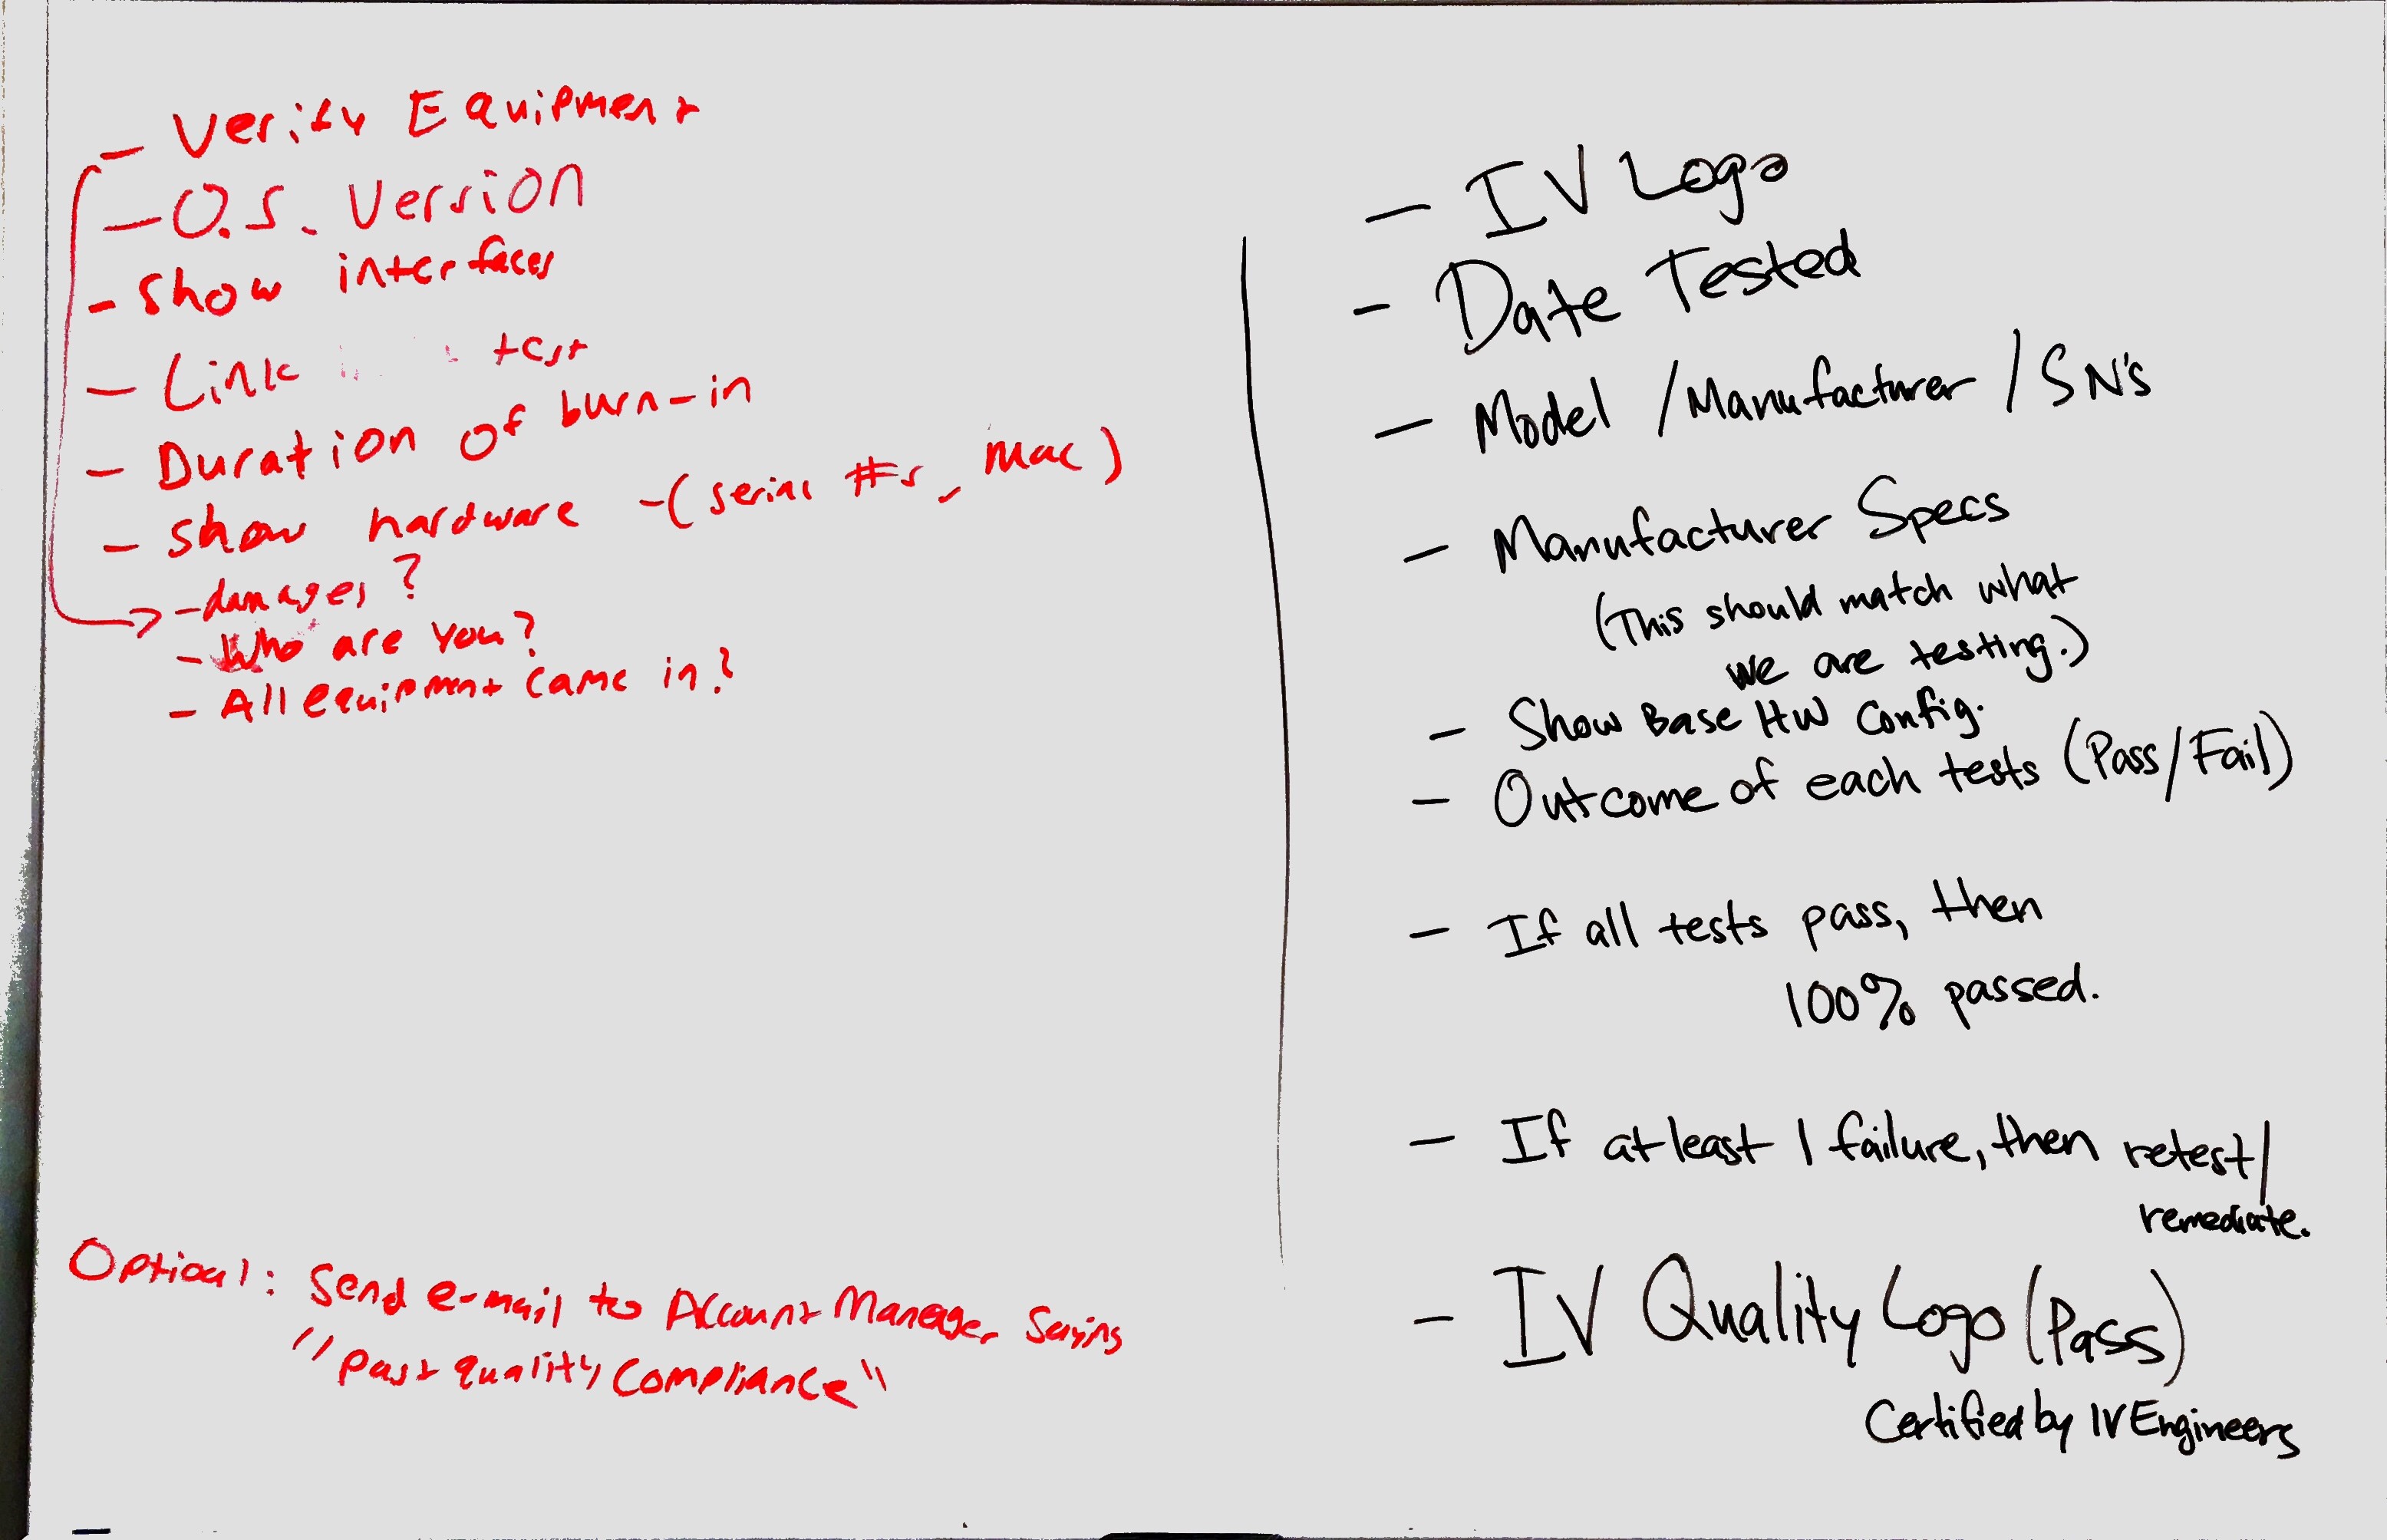 - Verify Equipment
- O.S. Version
- Show interfaces
- Link test
- Duration of burn-in
- show hardware - (serial #s, Mac)
- damages?
- Who are you?
- All equipment came in?
Optional: Send e-mail to Account Manager saying
"past quality compliance"
- IV Logo
- Date Tested
- Model / Manufacturer / SN's
- Manufacturer Specs
(This should match what
we are testing.)
- Show Base HW Config.
- Outcome of each tests (Pass/Fail)
- If all tests pass, then
100% passed.
- If at least 1 failure, then retest/
remediate.
- IV Quality Logo (Pass)
Certified by IV Engineers